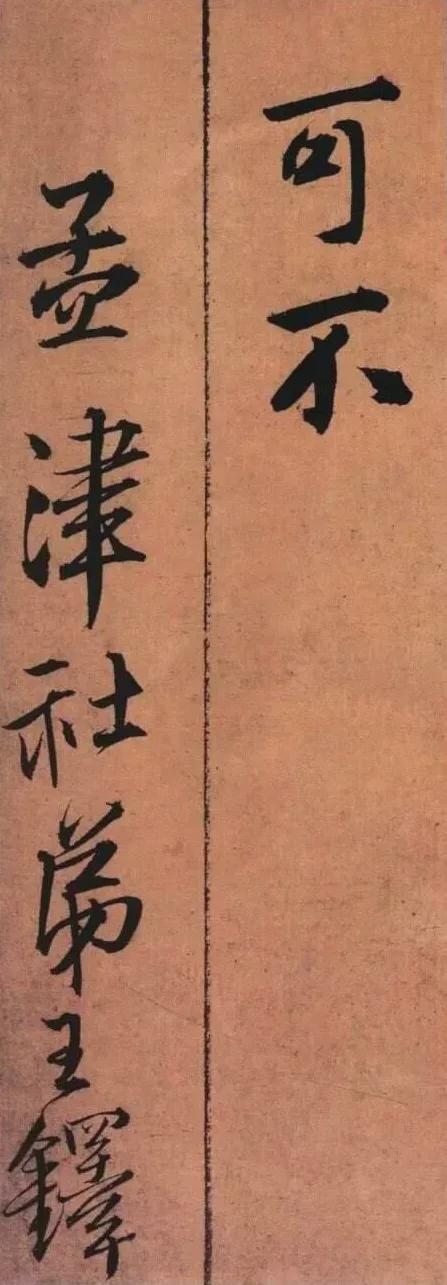 可不
孟津社弟王鐸